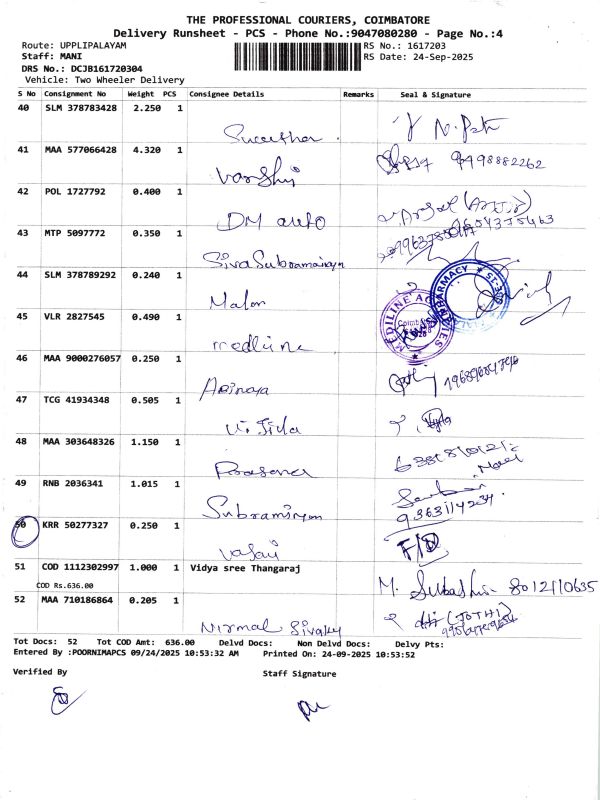 THE PROFESSIONAL COURIERS, COIMBATORE
Delivery Runsheet - PCS - Phone No.:9047080280 - Page No.:4
Route: UPPLIPALAYAM RS No.: 1617203
Staff: MANI RS Date: 24-Sep-2025
DRS No.: DCJB161720304
Vehicle: Two Wheeler Delivery
S No Consignment No Weight PCS Consignee Details Remarks Seal & Signature
40 SLM 378783428 2.250 1
41 MAA 577066428 4.320 1 Varshii 9498882262
42 POL 1727792 0.400 1 DM auto
43 MTP 5097772 0.350 1 Siva Subramaniyan
44 SLM 378789292 0.240 1 PHARMACY
45 VLR 2827545 0.490 1 medline MEDILINE
46 MAA 9000276057 0.250 1 Abinaya
47 TCG 41934348 0.505 1
48 MAA 303648326 1.150 1 Prasanna
49 RNB 2036341 1.015 1 Subramiyan
50 KRR 50277327 0.250 1
51 COD 1112302997 1.000 1 Vidya sree Thangaraj
COD Rs.636.00 M. Subashini 8012110635
52 MAA 710186864 0.205 1 Nirmal (JOTHI)
Tot Docs: 52 Tot COD Amt: 636.00 Delvd Docs: Non Delvd Docs: Delvy Pts:
Entered By :POORNIMAPCS 09/24/2025 10:53:32 AM Printed On: 24-09-2025 10:53:52
Verified By Staff Signature